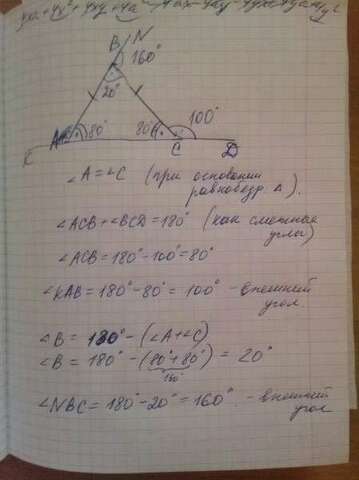 B N
160°
20°
A 80° 80° 100°
K C D
∠A=∠C (при основании
равнобедр. Δ).
∠ACB+∠BCD=180° (как смежные
углы)
∠ACB=180°-100°=80°
∠KAB=180°-80°=100° - внешний
угол
∠B = 180°-(∠A+∠C)
∠B = 180°-(80°+80°) = 20°
160°
∠NBC=180°-20°=160° - внешний
угол